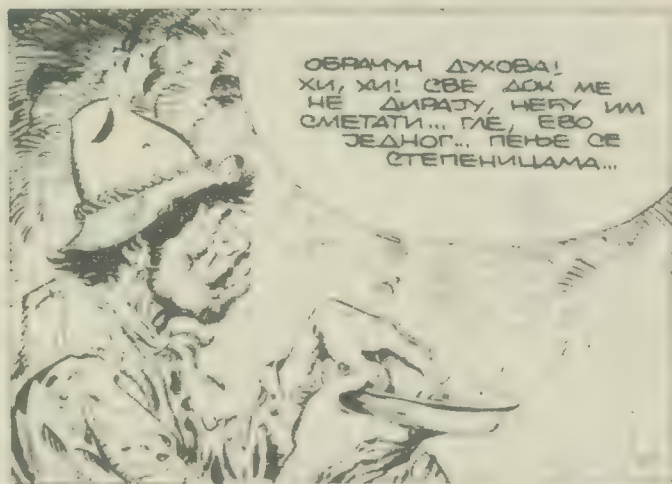 ОБРАЧУН ДУХОВА!
ХИ, ХИ! СВЕ ДОК МЕ
НЕ ДИРАЈУ, НЕЋУ ИМ
СМЕТАТИ... ГЛЕ, ЕВО
ЈЕДНОГ... ПЕЊЕ СЕ
СТЕПЕНИЦАМА...